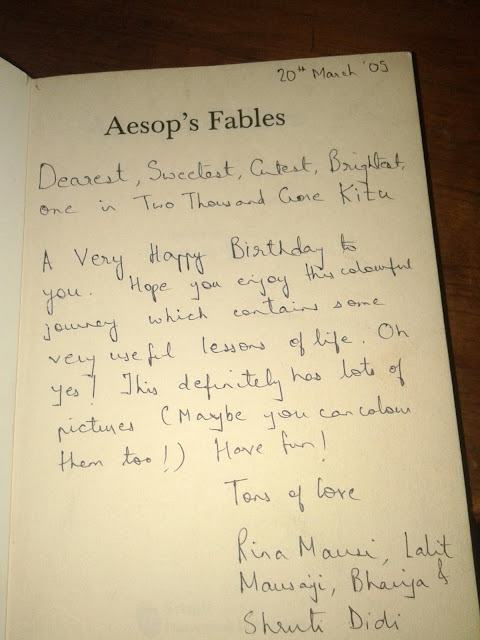 20th March '05
Aesop's Fables
Dearest, Sweetest, Cutest, Brightest,
one in Two Thousand Crore Kitu
A Very Happy Birthday to
you. Hope you enjoy this colourful
journey which contains some
very useful lessons of life. Oh
yes! This definitely has lots of
pictures (Maybe you can colour
them too!) Have fun!
Tons of love
Rina Mausi, Lalit
Mausaji, Bhaiya &
Shruti Didi